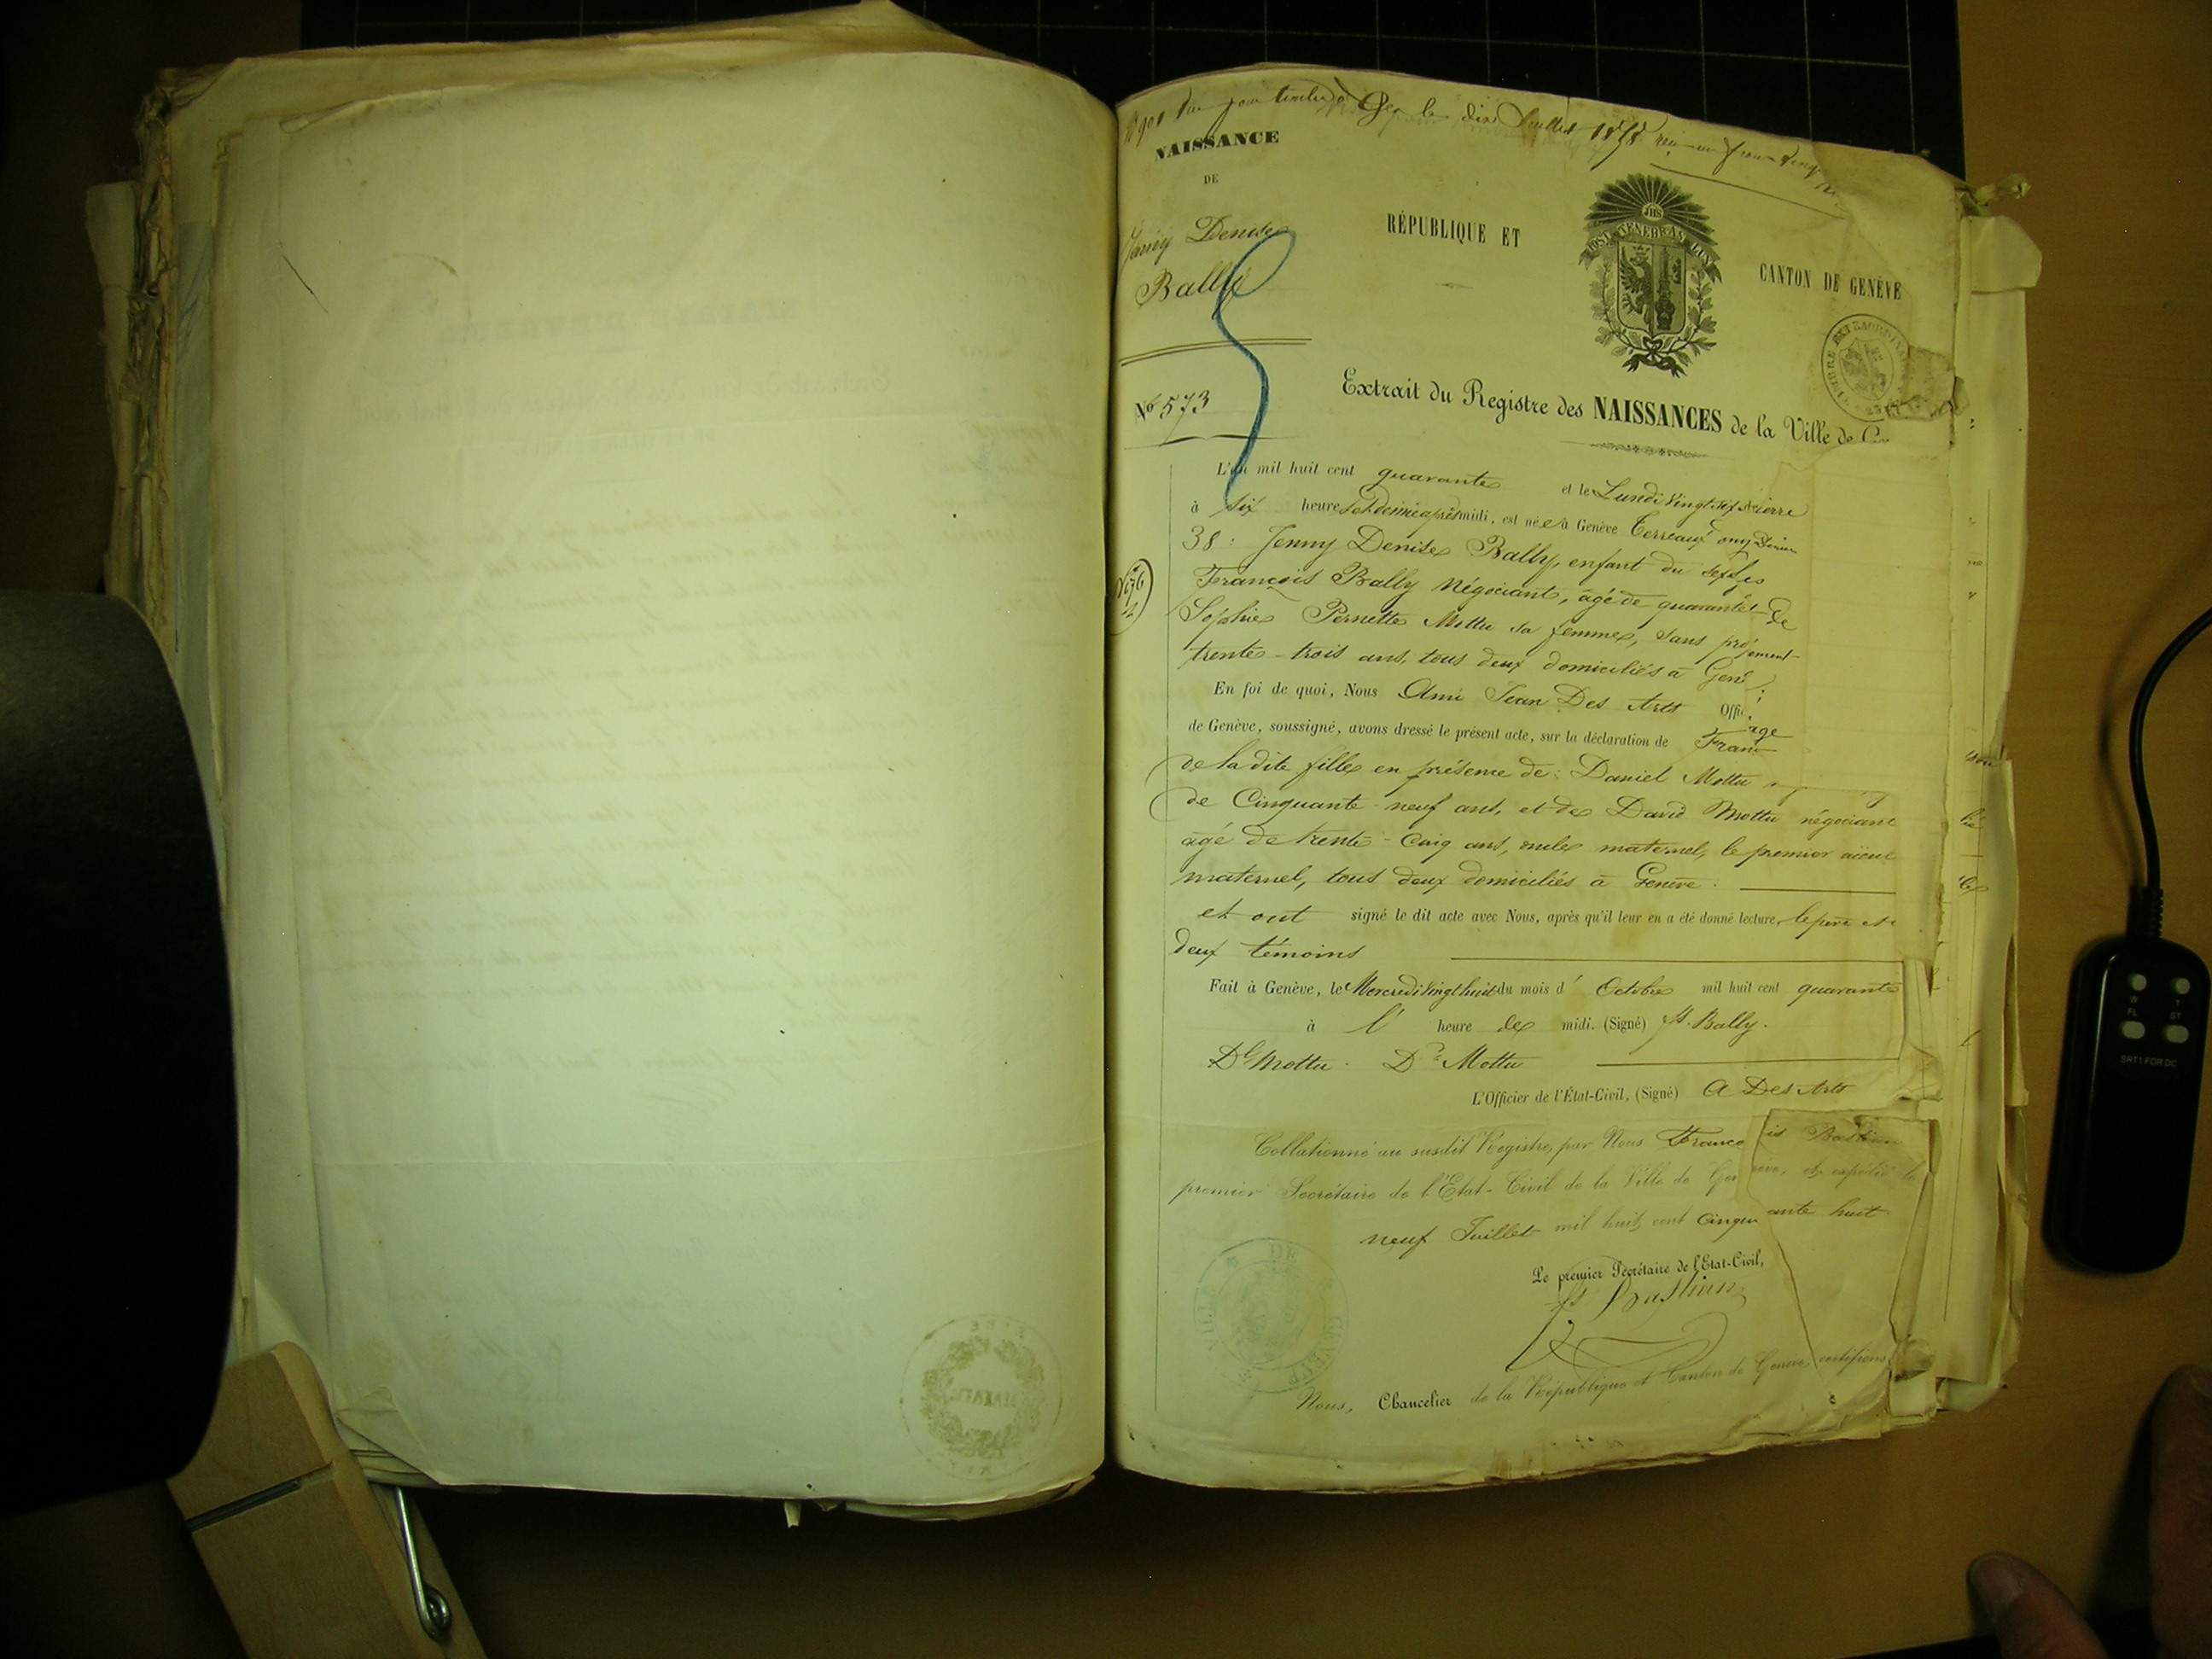 le dix Juillet 1858
NAISSANCE
DE
Jenny Denise
Bally
RÉPUBLIQUE ET
JHS
POST TENEBRAS LUX
CANTON DE GENÈVE
TIMBRE EXTRAORDINAIRE
No 573
Extrait du Registre des NAISSANCES de la Ville de
L'an mil huit cent quarante et le Lundi vingt six
à six heures et demie après midi, est née à Genève Terreaux
38: Jenny Denise Bally, enfant du sexe
François Bally Négociant, âgé de quarante
Sophie Pernette Mottu sa femme, sans
trente-trois ans, tous deux domiciliés à
En foi de quoi, Nous Ami Jean Des Arts
de Genève, soussigné, avons dressé le présent acte, sur la déclaration de
de la dite fille en présence de: Daniel Mottu
de Cinquante-neuf ans, et de David Mottu négociant
âgé de trente-cinq ans, oncle maternel, le premier aïeul
maternel, tous deux domiciliés à Genève.
et ont signé le dit acte avec Nous, après qu'il leur en a été donné lecture, le père et
deux témoins
Fait à Genève, le Mercredi vingt huit du mois d' Octobre mil huit cent quarante
à l' heure de midi. (Signé) Fs. Bally.
Dl Mottu. Dd Mottu
L'Officier de l'État-Civil, (Signé) A Des Arts
Collationné au susdit Registre, par Nous François Bastian
premier Secrétaire de l'Etat-Civil de la Ville de Genève, et expédié le
neuf Juillet mil huit cent cinquante huit
Le premier Secrétaire de l'Etat-Civil,
Fs Bastian
Nous, Chancelier de la République et Canton de Genève, certifions
W T
FL ST
SRT1 FOR DC